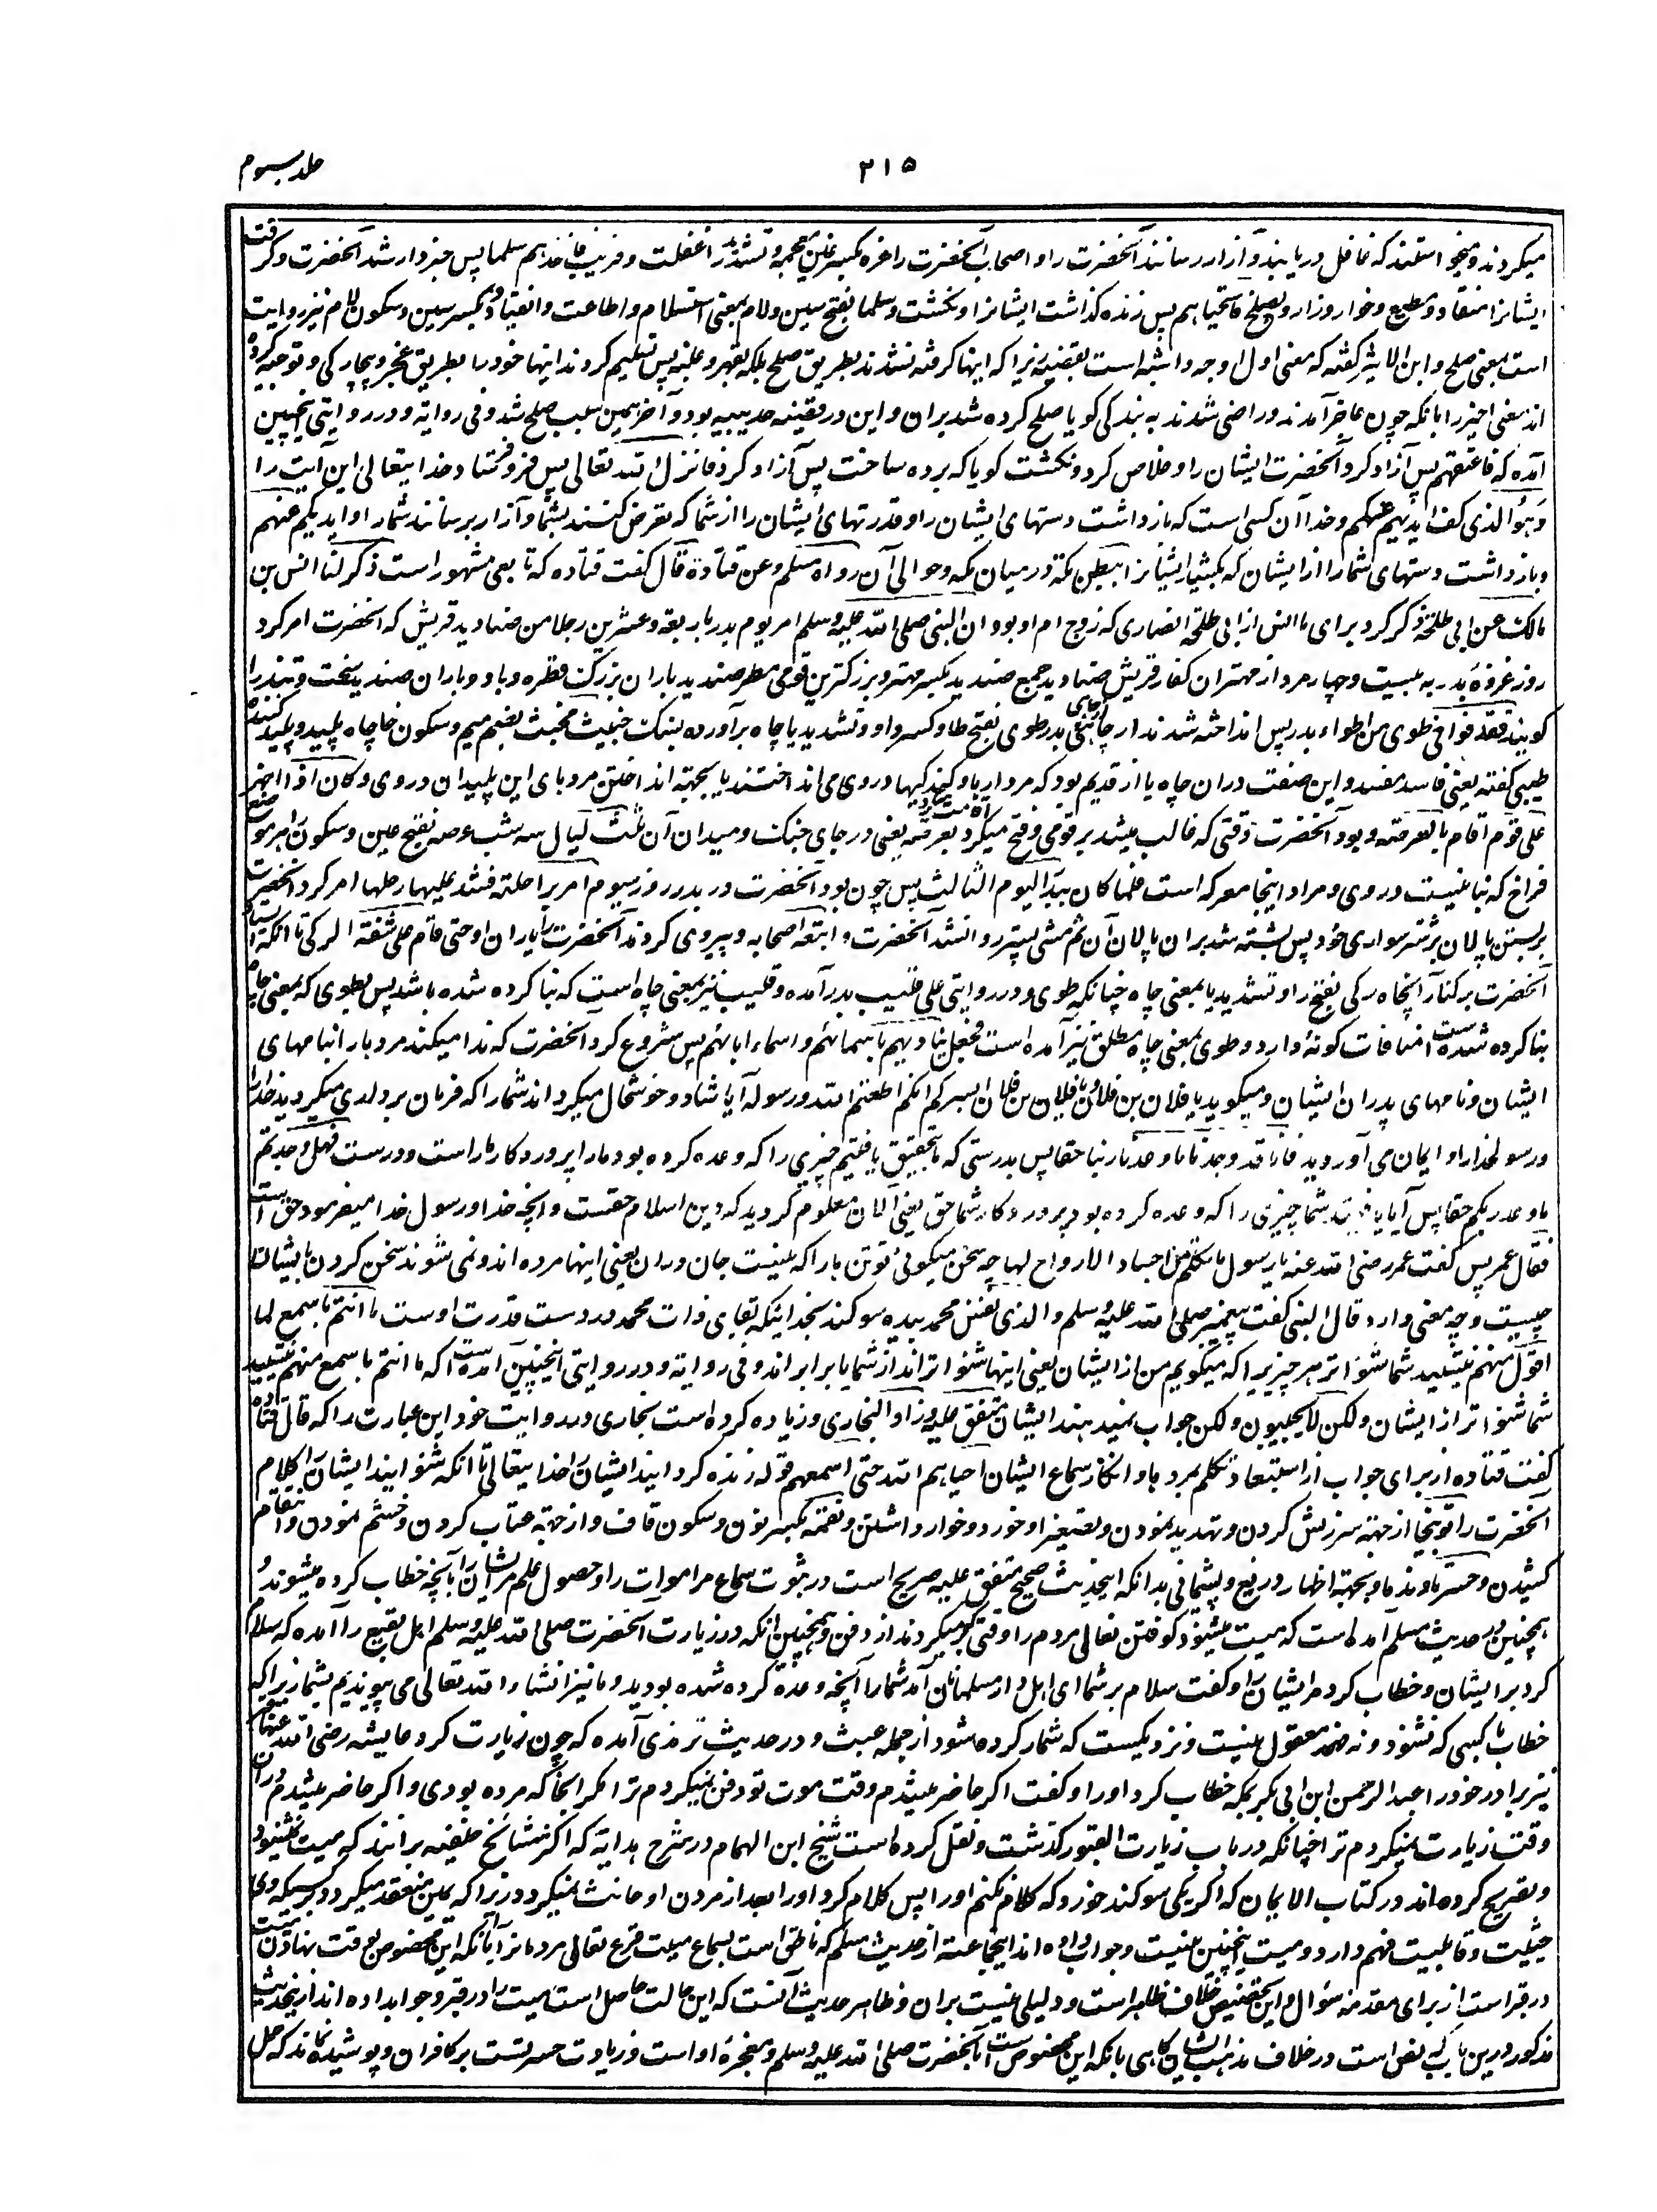 جلد سوم
۲۱۵
میکردند و میخواستند که غافل در یابند و آزار رسانند آنحضرت را و اصحاب آنحضرت را غره بکسر غین معجمه و تشدید را غفلت و فریب فاخذهم سلما پس خبردار شد آنحضرت و گرفت
ایشانرا منقاد و مطیع و خوار و زار و بصلح فاستحیاهم پس زنده گذاشت ایشانرا و نکشت و سلما بفتح سین و لام بمعنی استسلام و اطاعت و انقیاد و بکسر سین و سکون لام نیز روایت
است بمعنی صلح و ابن الاثیر گفته که معنی اول اوجه و اشبه است بقضیه زیرا که اینها گرفته نشدند بطریق صلح بلکه بقهر و غلبه پس تسلیم کردند اینها خود را بطریق عجز و بیچارگی و توجیه کرده
اند معنی اخیر را بانکه چون عاجز آمدند و راضی شدند به بندگی گویا صلح کرده شد بران و این در قضیه حدیبیه بود و آخر همین سبب صلح شد و فی روایة و در روایتی اینچنین
آمده که فاعتقهم پس آزاد کرد آنحضرت ایشان را و خلاص کرد و نکشت گویا که برده ساخت پس آزاد کرد فانزل الله تعالی پس فرو فرستاد خدا یتعالی این آیت را
و هو الذی کف ایدیهم عنکم و خدا آن کسی است که بازداشت دستهای ایشان را و قدرتهای ایشان را از شما که تعرض کنند بشما و آزار برسانند شما را و ایدیکم عنهم
و بازداشت دستهای شما را از ایشان که بکشید ایشانرا ببطن مکة در میان مکه و حوالی آن رواه مسلم و عن قتادة قال گفت قتاده که تابعی مشهور است ذکر لنا انس بن
مالک عن ابی طلحة ذکر کرد برای ما انس از ابی طلحه انصاری که زوج ام او بود ان النبی صلی الله علیه وسلم امر یوم بدر باربعة و عشرین رجلا من صنادید قریش که آنحضرت امر کرد
روز غزوهٔ بدر به بیست و چهار مرد از مهتران کفار قریش صنادید جمع صندید بکسر مهتر و بزرگترین قوم و مطر صندید باران بزرگ قطره و باد و باران صندید سخت و تند را
گویند فقذفوا فی طوی من اطواء بدر پس انداخته شدند در چاهی از چاههای بدر طوی بفتح طا و کسر واو و تشدید یا چاه برآورده بسنگ خبیث مخبث بضم میم و سکون خا چاه پلید و پلید کننده
طیبی گفته یعنی فاسد مفسد و این صفت دران چاه یا از قدیم بود که مردارها و گندگیها در وی می انداختند یا بجهة انداختن مردهای این پلیدان در وی و کان اذا ظهر
علی قوم اقام بالعرصة و بود آنحضرت وقتی که غالب میشد بر قومی و فتح میکرد اقامت میکرد بعرصه یعنی در جای جنگ و میدان آن ثلث لیال سه شب عرصه بفتح عین و سکون را هر موضع
فراخ که بنا نیست در وی و مراد اینجا معرکه است فلما کان ببدر الیوم الثالث پس چون بود آنحضرت در بدر روز سیوم امر براحلته فشد علیها رحلها امر کرد آنحضرت
بربستن پالان بر شتر سواری خود پس بسته شد بران پالان آن ثم مشی پستر روانشد آنحضرت و اتبعه اصحابه و پیروی کردند آنحضرت را یاران او حتی قام علی شفة الرکی تا آنکه ایستاد
آنحضرت بر کنار آنچاه رکی بفتح را و تشدید یا بمعنی چاه چنانکه طوی و در روایتی علی قلیب بدر آمده و قلیب نیز بمعنی چاه است که بنا کرده شده باشد پس بطوی که بمعنی چاه
بنا کرده شده است منافات گونهٔ دارد و طوی بمعنی چاه مطلق نیز آمده است فجعل ینادیهم باسمائهم و اسماء ابائهم پس شروع کرد آنحضرت که ندا میکند مردها را بنامهای
ایشان و نامهای پدران ایشان و میگوید یا فلان بن فلان و یا فلان بن فلان ایسرکم انکم اطعتم الله و رسوله آیا شاد و خوشحال میگرداند شما را که فرمان برداری میکردید خدا را
و رسولخدا را و ایمان می آوردید فانا قد وجدنا ما وعدنا ربنا حقا پس بدرستی که ما بتحقیق یافتیم چیزی را که وعده کرده بود ما را پروردگار ما راست و درست فهل وجدتم
ما وعد ربکم حقا پس آیا یافتید شما چیزی را که وعده کرده بود پروردگار شما حق یعنی الان معلوم گردید که دین اسلام حقست و آنچه خدا و رسول خدا میفرمود حق است
فقال عمر پس گفت عمر رضی الله عنه یا رسول ما تکلم من اجساد لا ارواح لها چه سخن میگوئی تو تن ها را که نیست جان دران یعنی اینها مرده اند و نمی شنوند سخن کردن با ایشان
چیست و چه معنی دارد قال النبی گفت پیغمبر صلی الله علیه وسلم والذی نفس محمد بیده سوگند بخدا اینکه بقای ذات محمد در دست قدرت اوست ما انتم باسمع لما
اقول منهم نیستید شما شنواتر هر چیزیرا که میگویم من از ایشان یعنی اینها شنواتر اند از شما یا برابر اند و فی روایة و در روایتی اینچنین آمده است که ما انتم باسمع منهم نیستید
شما شنواتر از ایشان و لکن لا یجیبون و لکن جواب نمیدهند ایشان متفق علیه و زاد البخاری و زیاده کرده است بخاری در روایت خود این عبارت را که قال قتادة
گفت قتاده از برای جواب از استبعاد تکلم بمردها و انکار سماع ایشان احیاهم الله حتی اسمعهم قوله زنده گردانید ایشان را خدا یتعالی تا آنکه شنوانید ایشان را کلام
آنحضرت را توبیخا از جهة سرزنش کردن و تهدید نمودن و تصغیرا و خورد و خوار داشتن و نقمة بکسر نون و سکون قاف و از جهة عتاب کردن و خشم نمودن و انتقام
کشیدن و حسرة و ندما و بجهة اظهار دریغ و پشیمانی بدانکه اینحدیث صحیح متفق علیه صریح است در ثبوت سماع مر اموات را و حصول علم مر ایشان را بآنچه خطاب کرده میشوند و
همچنین در حدیث مسلم آمده است که میت میشنود کوفتن نعال مردم را وقتی که میگردند از دفن و همچنین آنکه در زیارت آنحضرت صلی الله علیه وسلم اهل بقیع را آمده که سلام
کرد بر ایشان و خطاب کرد مر ایشان را و گفت سلام بر شما ای اهل دار مسلمانان آمد شما را آنچه وعده کرده شده بودید و ما نیز انشاء الله تعالی می پیوندیم بشما زیرا که
خطاب با کسی که نشنود و نه فهمد معقول نیست و نزدیکست که شمار کرده شود از جمله عبث و در حدیث ترمذی آمده که چون زیارت کرد عایشه رضی الله عنها
نیز برادر خود را عبد الرحمن ابن ابی بکر بمکه خطاب کرد او را و گفت اگر حاضر میشدم وقت موت تو دفن نمیکردم ترا مگر آنجا که مرده بودی و اگر حاضر میشدم دران
وقت زیارت نمیکردم ترا چنانکه در باب زیارت القبور گذشت و نقل کرده است شیخ ابن الهمام در شرح هدایة که اکثر مشایخ حنفیه برانند که میت نمیشنود
و تصریح کرده اند در کتاب الایمان که اگر یکی سوگند خورد که کلام نکنم او را پس کلام کرد او را بعد از مردن او حانث نمیگردد زیرا که یمین منعقد میگردد بر کسیکه وی
حیثیت و قابلیت فهم دارد و میت اینچنین نیست و جواب داده اند اینجماعت از حدیث مسلم که ناطق است بسماع میت قرع نعال مردمانرا بآنکه این مخصوص بوقت نهادن میت
در قبر است از برای مقدمه سؤال و این تخصیص خلاف ظاهر است و دلیلی نیست بران و ظاهر حدیث آنست که این حالت حاصل است میت را در قبر و جوابداده اند از اینحدیث
مذکور درین باب که نص است در خلاف مذهب ایشان گاهی بانکه این مخصوص است بآنحضرت صلی الله علیه وسلم و معجزهٔ او است و زیادت حسرتست بر کافران و پوشیده نماند که حمل